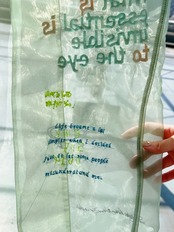 what is
essential is
invisible
to the eye
Life became a lot
simpler when I decided
just to let some people
misunderstand me.